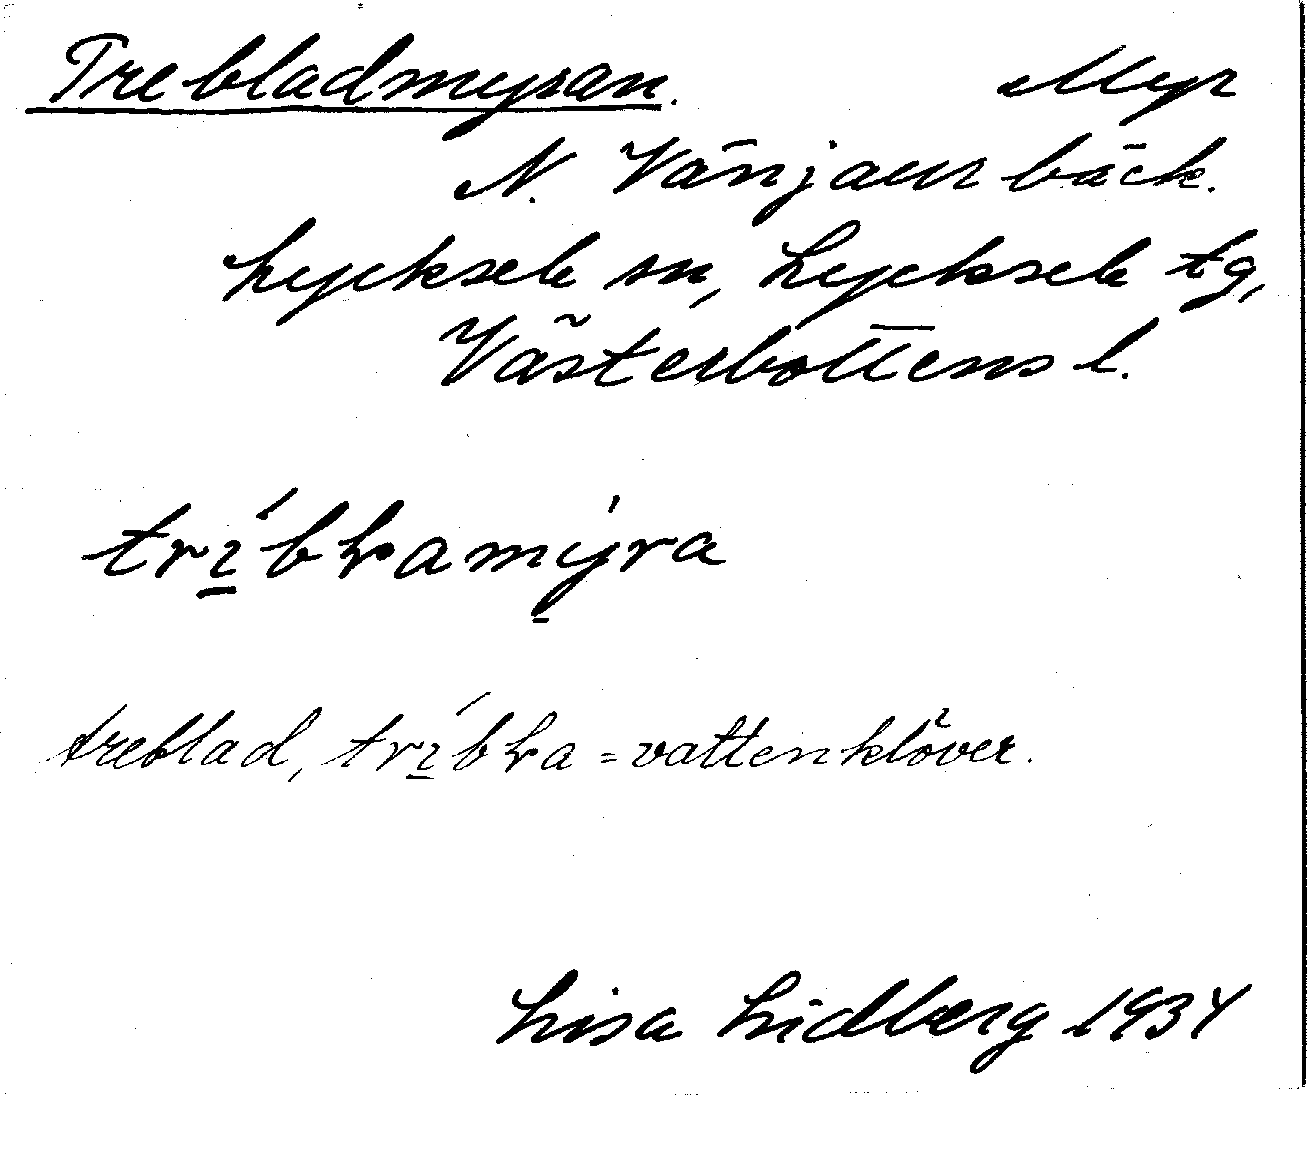 Trebladmyran. Myr
N. Vänjaurbäck.
Lycksele sn, Lycksele tg,
Västerbottens l.
trı̲́bḷamy̲̍ra
treblad, trı̲́bḷa = vattenklöver.
Lisa Lidberg 1934